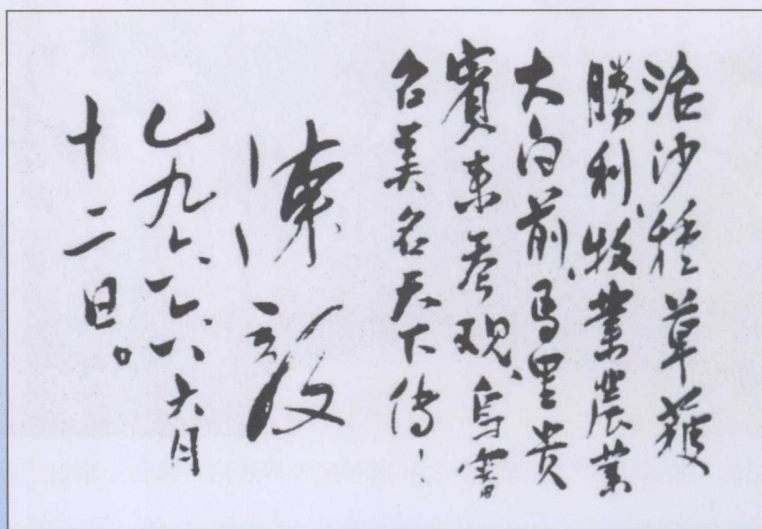 治沙种草獲
勝利、牧業農業
大向前、馬里贵
賓来参观、乌審
召美名天下傳！
陳毅
一九六六、六月
十二日。